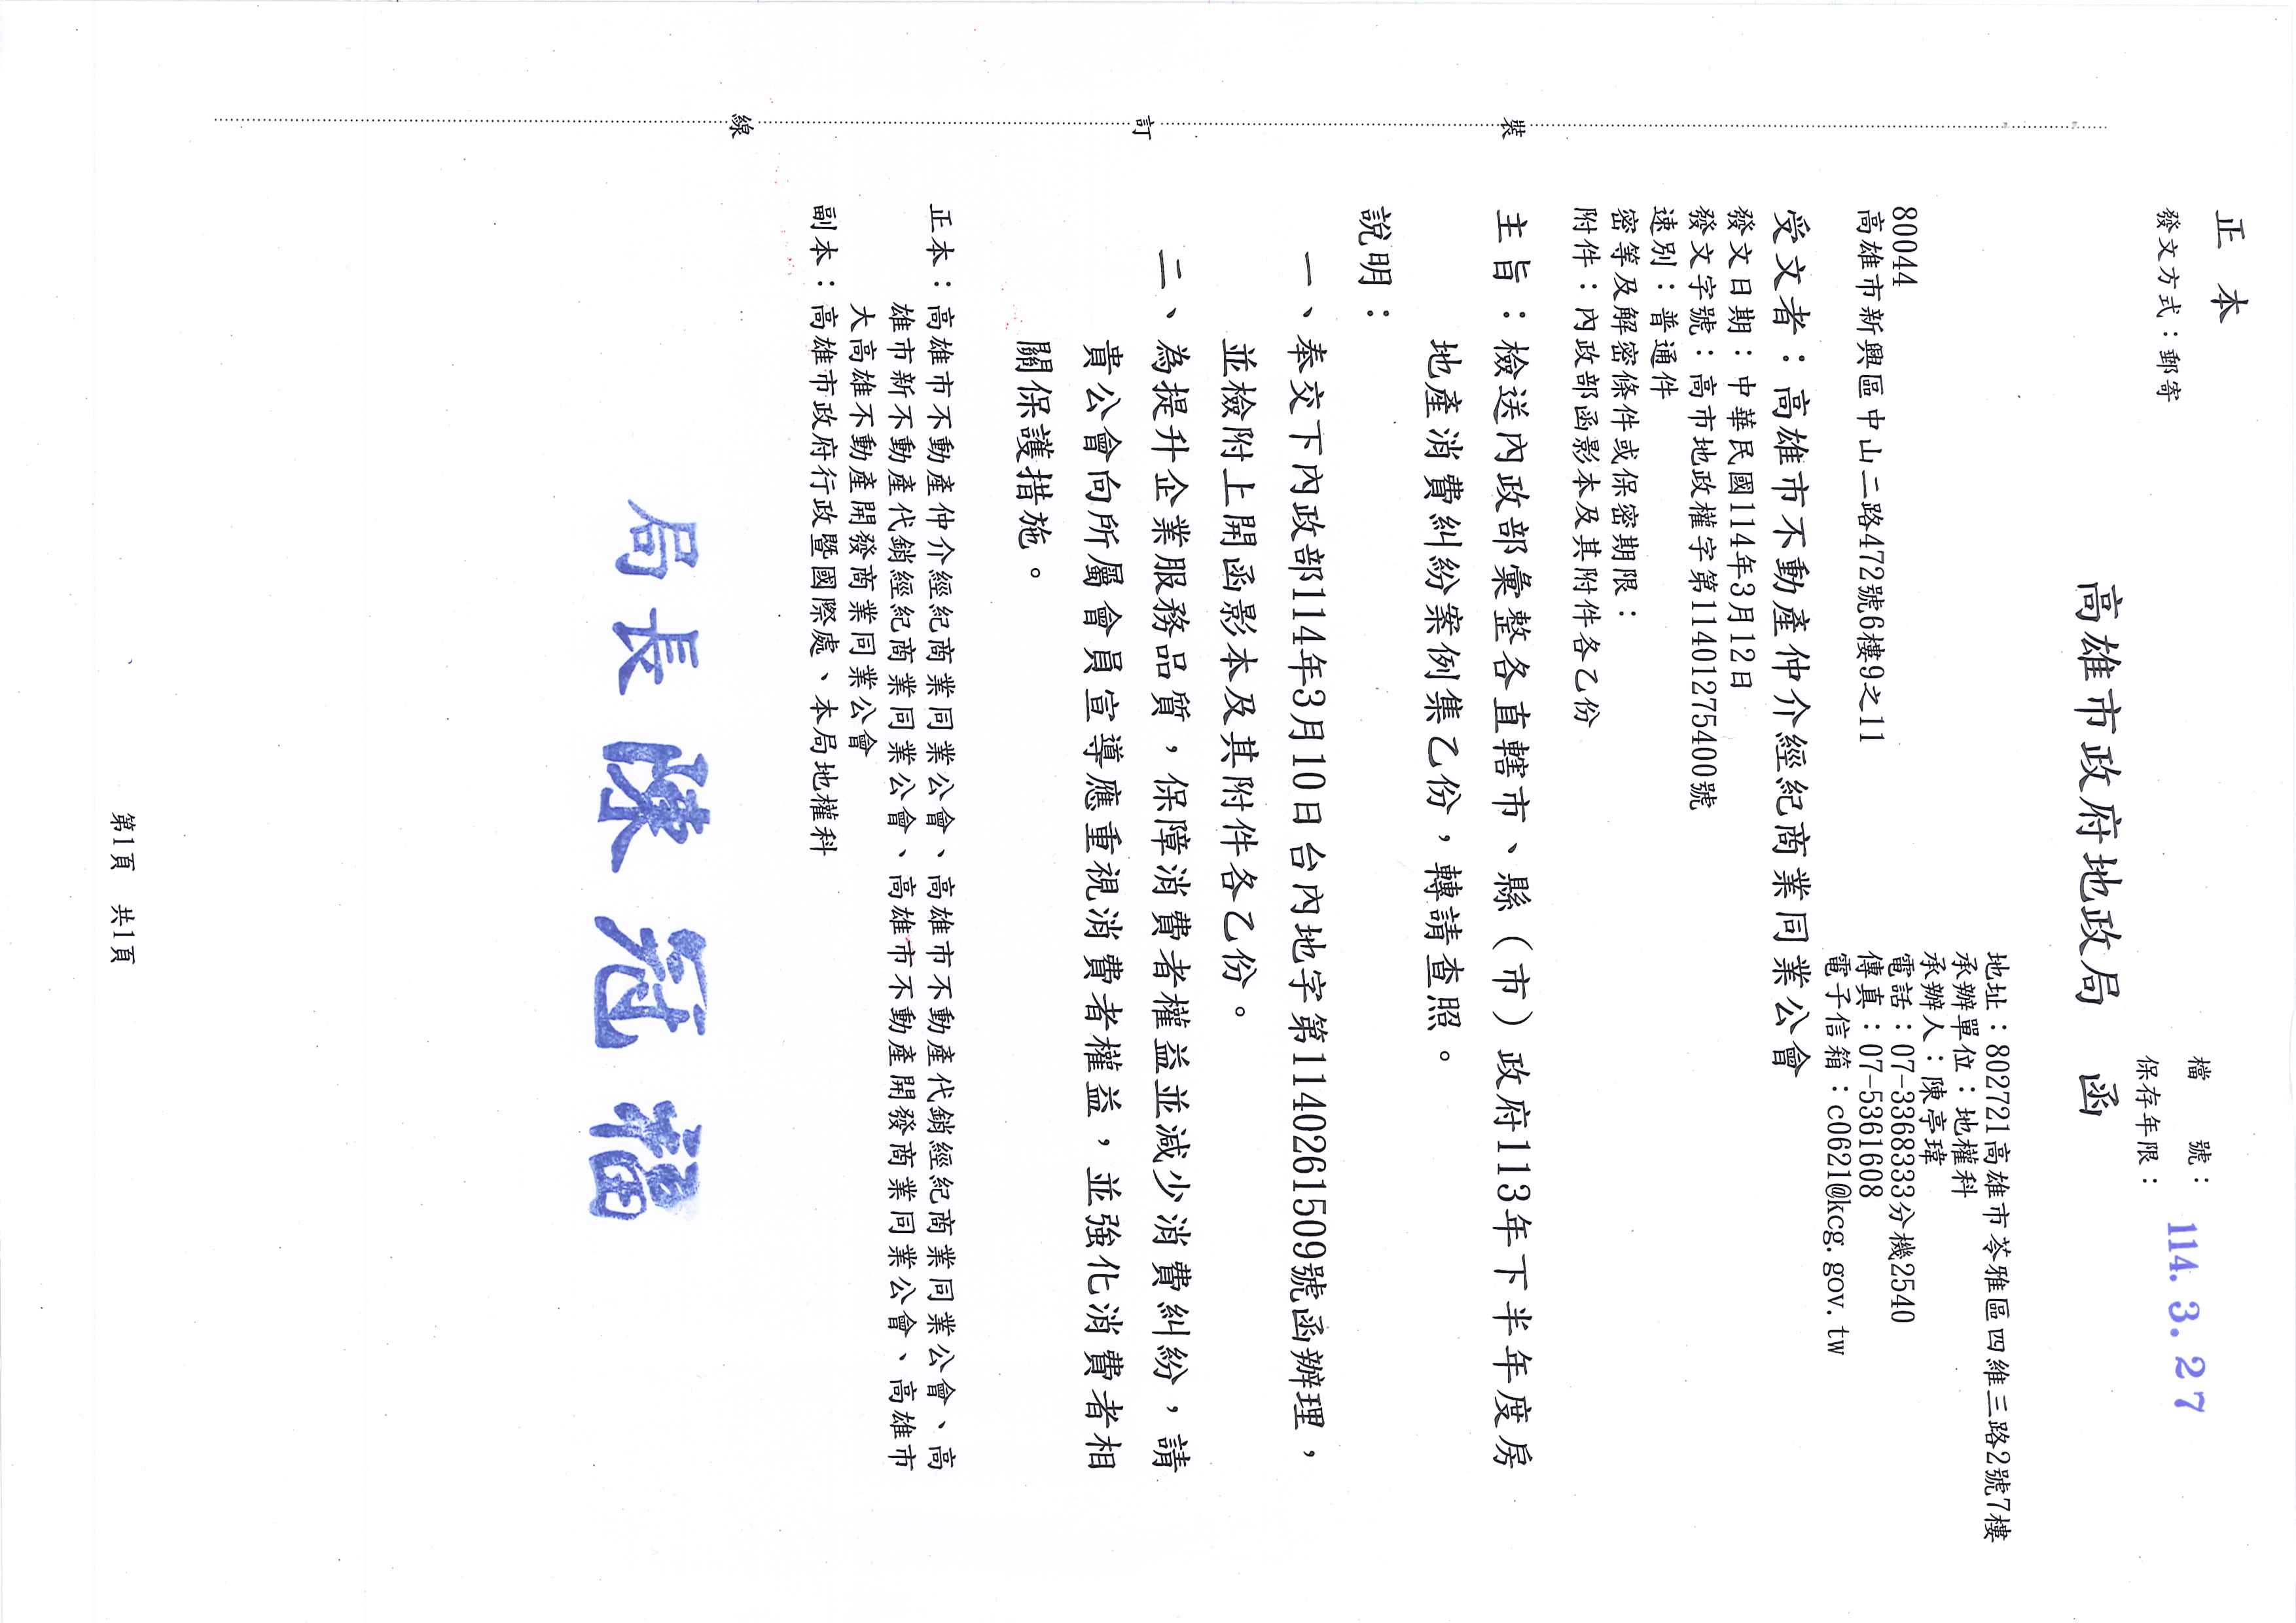 正本
發文方式：郵寄
檔　　號：
保存年限：
114. 3. 27
高雄市政府地政局　函
地址：802721高雄市苓雅區四維三路2號7樓
承辦單位：地權科
承辦人：陳亭瑋
電話：07-3368333分機2540
傳真：07-5361608
電子信箱：c0621@kcg.gov.tw
80044
高雄市新興區中山二路472號6樓9之11
受文者：高雄市不動產仲介經紀商業同業公會
發文日期：中華民國114年3月12日
發文字號：高市地政權字第11401275400號
速別：普通件
密等及解密條件或保密期限：
附件：內政部函影本及其附件各乙份
主旨：檢送內政部彙整各直轄市、縣（市）政府113年下半年度房
地產消費糾紛案例集乙份，轉請查照。
說明：
一、奉交下內政部114年3月10日台內地字第1140261509號函辦理，
並檢附上開函影本及其附件各乙份。
二、為提升企業服務品質，保障消費者權益並減少消費糾紛，請
貴公會向所屬會員宣導應重視消費者權益，並強化消費者相
關保護措施。
正本：高雄市不動產仲介經紀商業同業公會、高雄市不動產代銷經紀商業同業公會、高
雄市新不動產代銷經紀商業同業公會、高雄市不動產開發商業同業公會、高雄市
大高雄不動產開發商業同業公會
副本：高雄市政府行政暨國際處、本局地權科
局長陳冠福
裝
訂
線
第1頁　共1頁